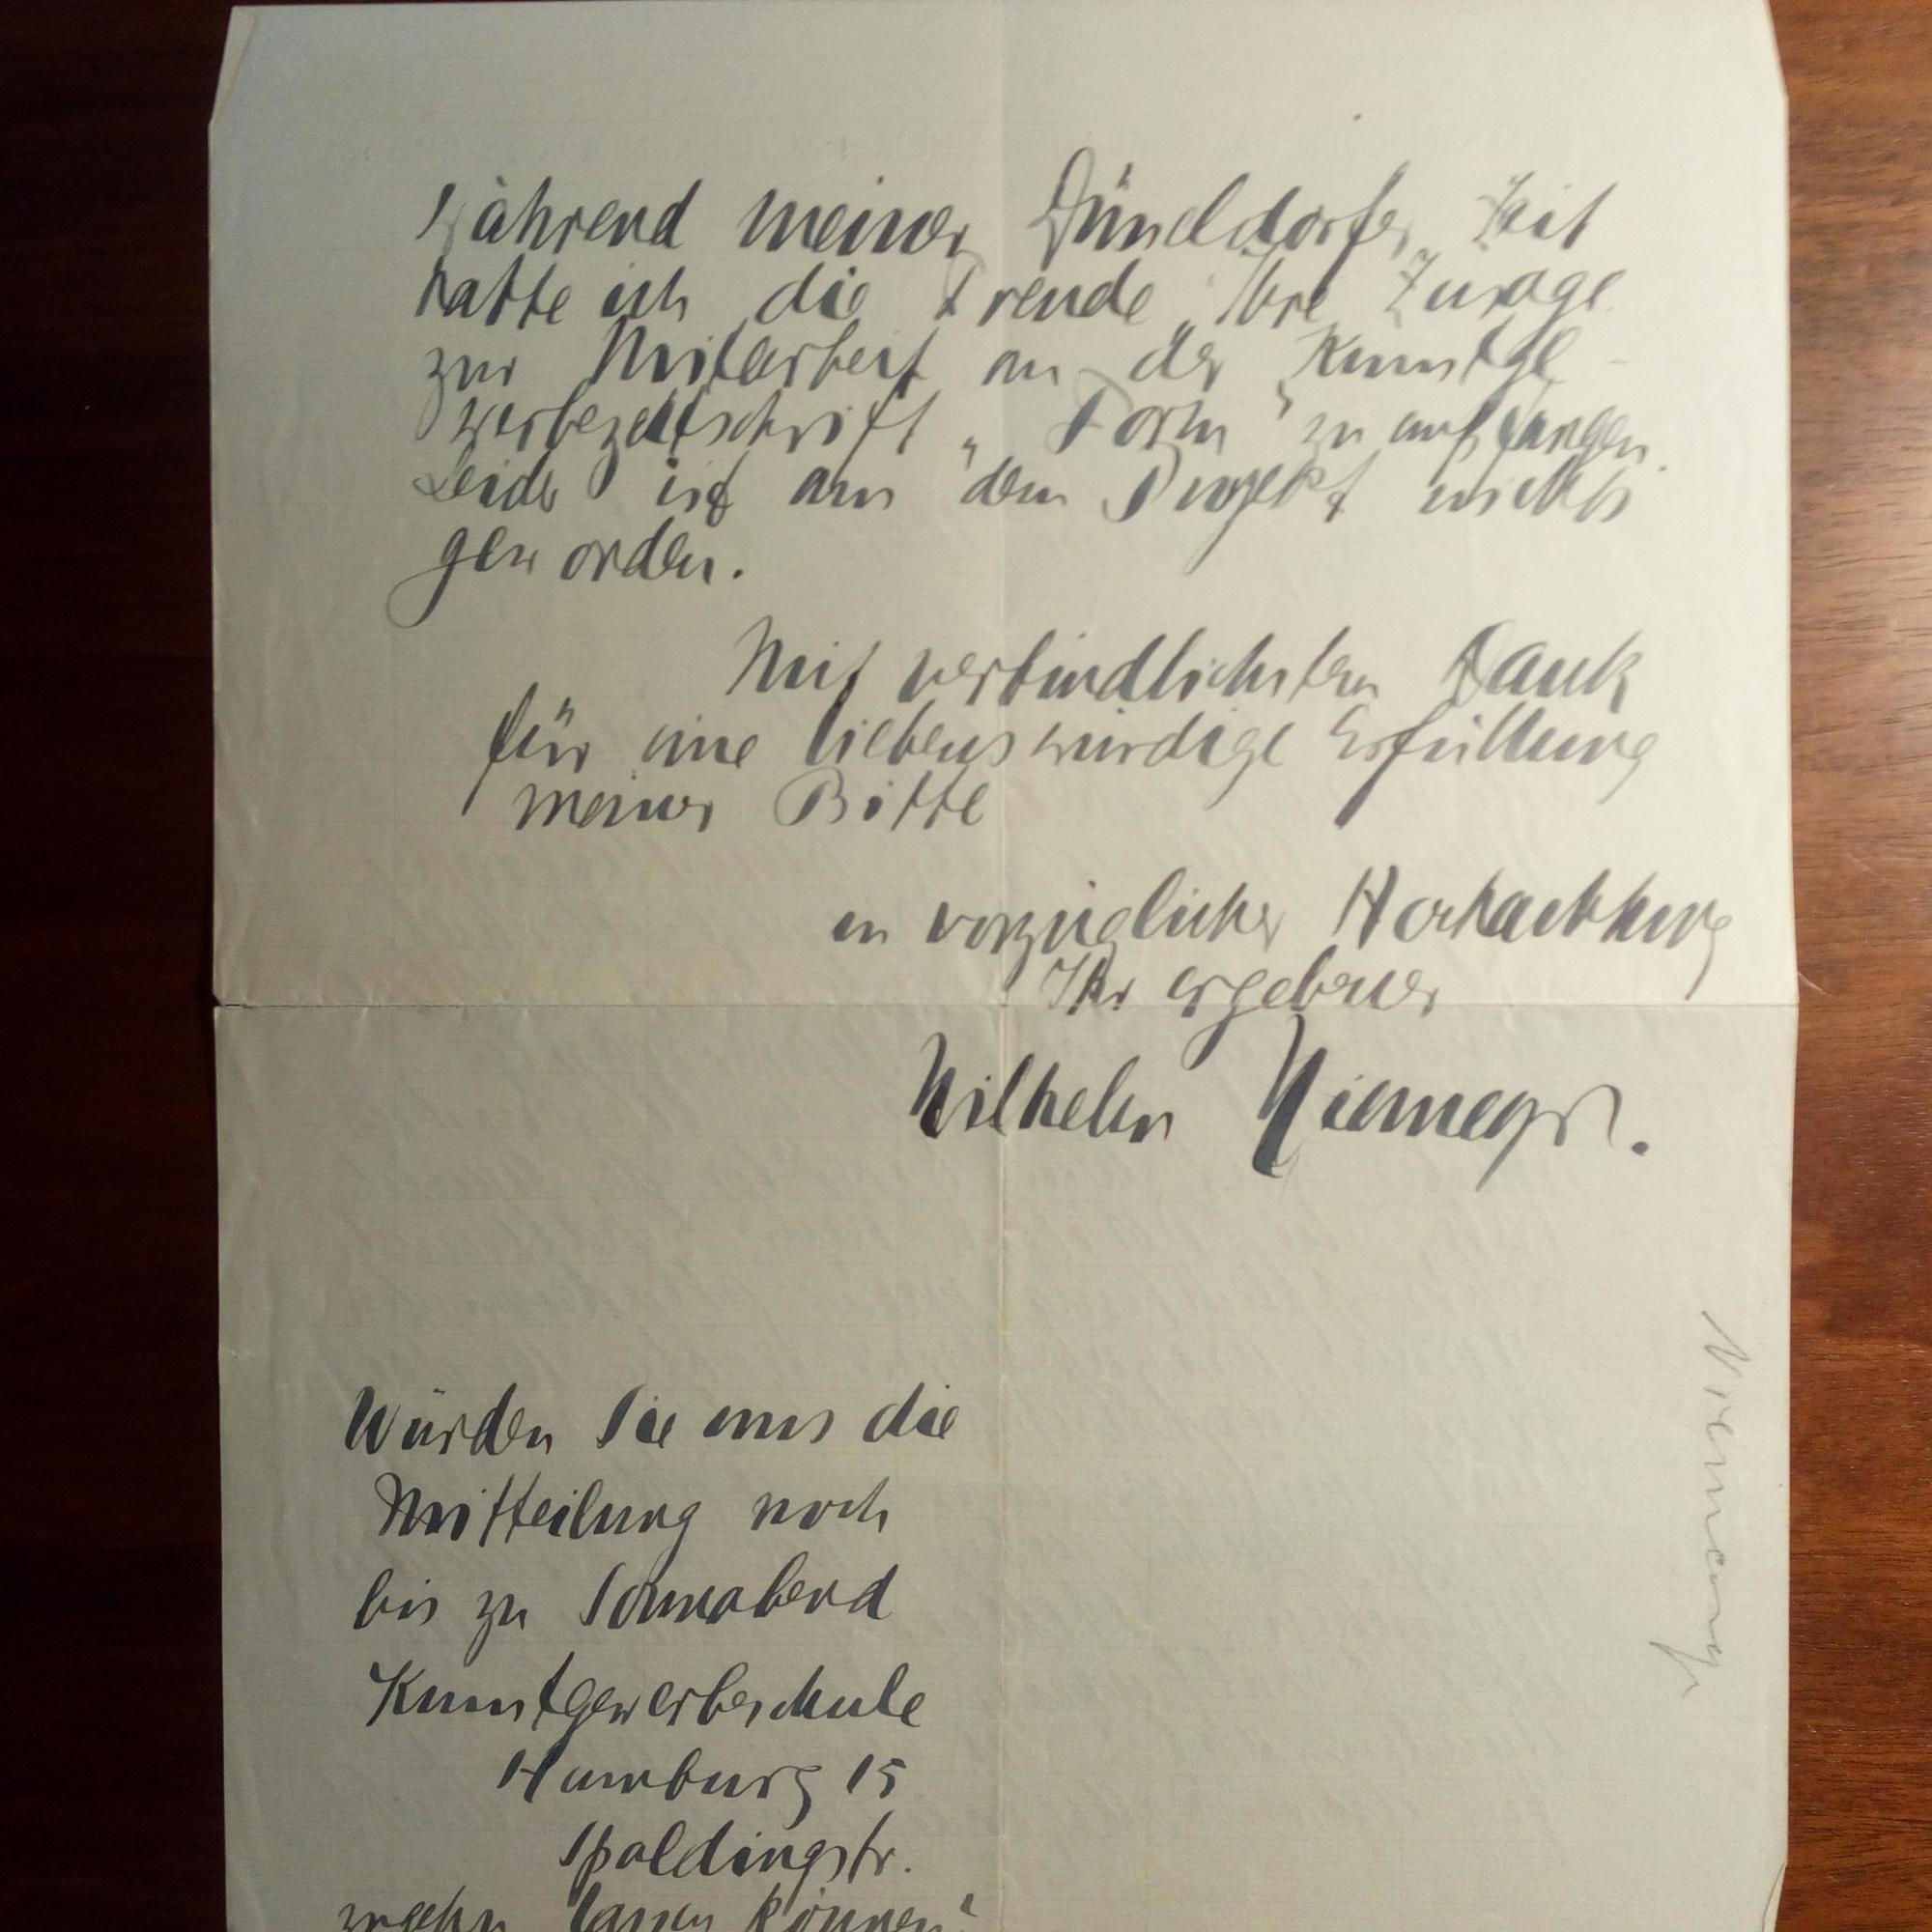 Während meiner Düsseldorfer Zeit
hatte ich die Freude Ihre Zusage
zur Mitarbeit an der Kunstge-
werbezeitschrift „Form“ zu empfangen.
Leider ist aus dem Projekt nichts
geworden.
Mit verbindlichstem Dank
für eine liebenswürdige Erfüllung
meiner Bitte
in vorzüglicher Hochachtung
Ihr ergebener
Wilhelm Niemeyer.
Würden Sie uns die
Mitteilung noch
bis zu Sonnabend
Kunstgewerbeschule
Hamburg 15
Spaldingstr.
zugehn lassen können?
Niemeyer